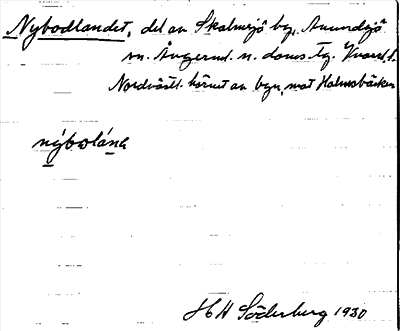 Nybodlandet, del av Skalmsjö by, Anundsjö
sn. Ångerml. n. doms. tg. Kvarl. i.
Nordvästl. hörnet av byn, mot Halmsbäcken
nýbωláṇɑ
H H Söderberg 1930